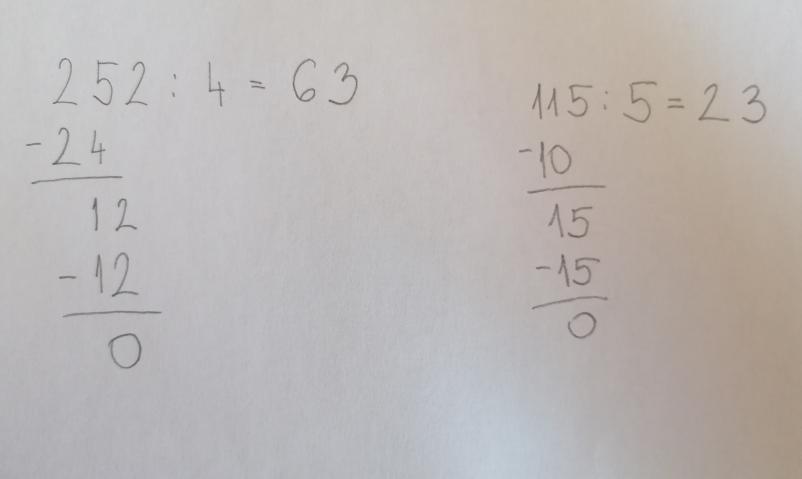 252 : 4 = 63
-24
12
-12
0
115 : 5 = 23
-10
15
-15
0